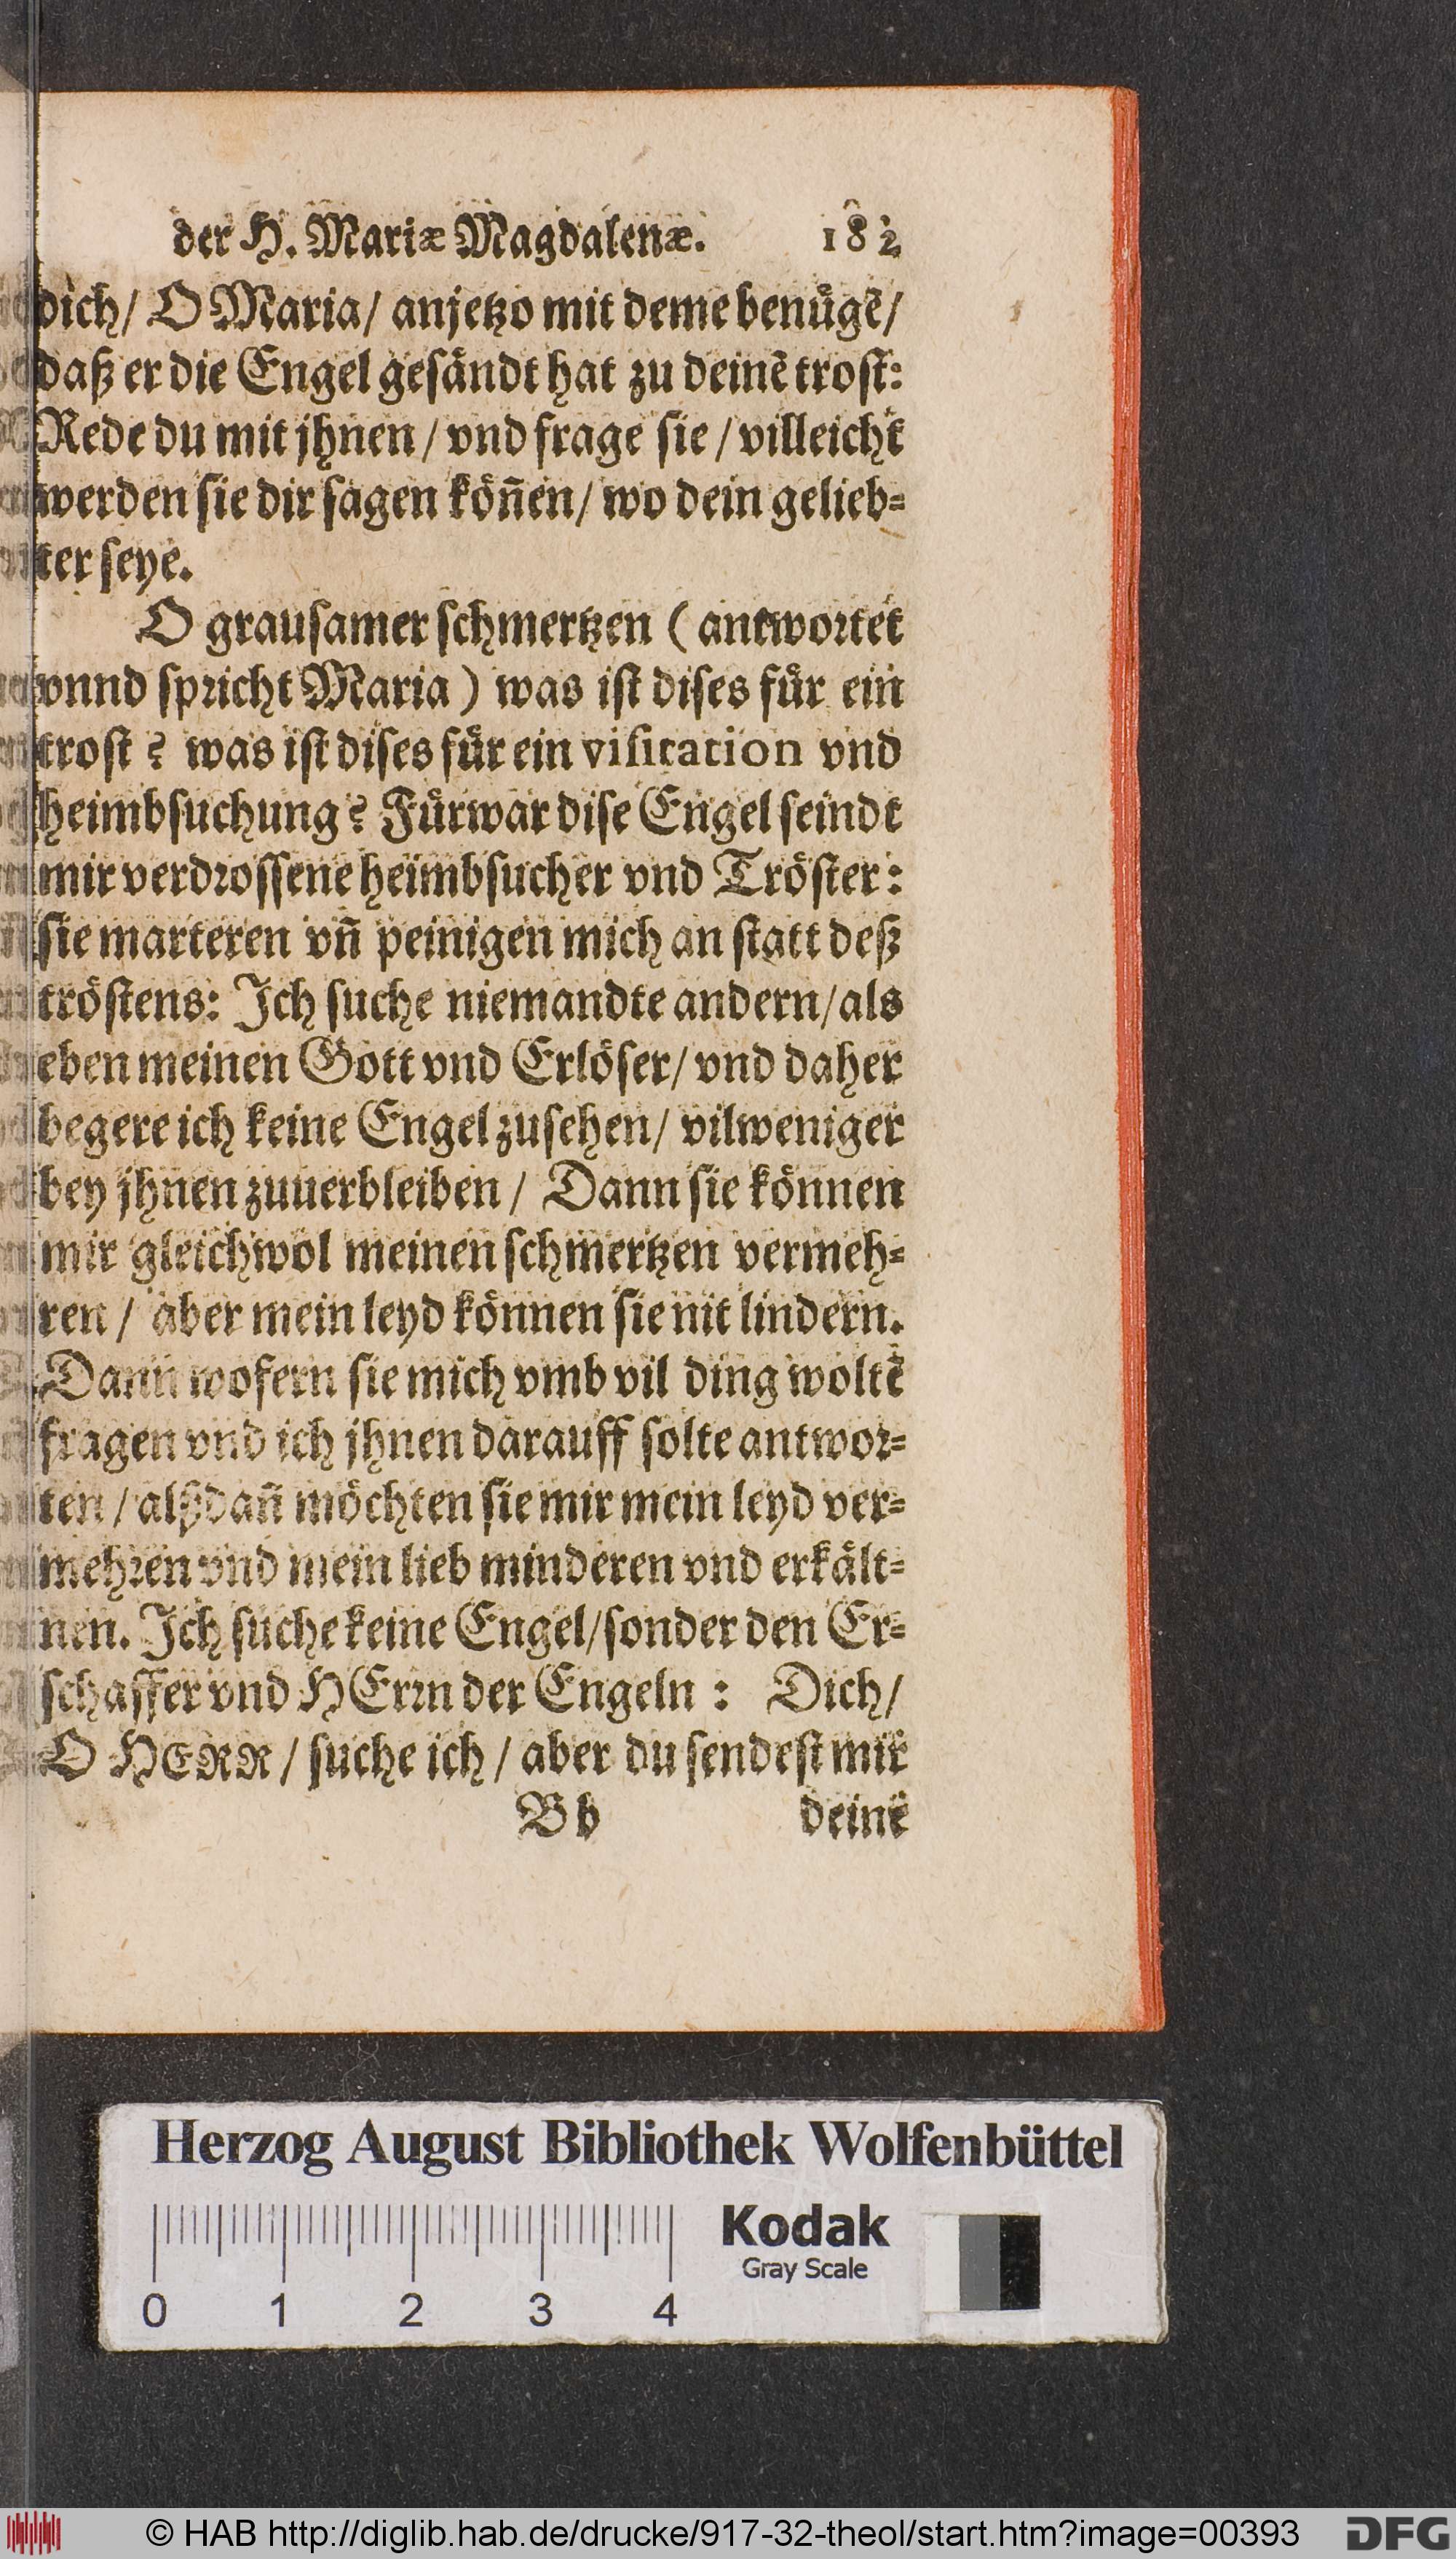 der H. Mariæ Magdalenæ. 182
dich/ O Maria/ anjetzo mit deme benügẽ/
daß er die Engel gesändt hat zu deinẽ trost:
Rede du mit jhnen/ vnd frage sie/ villeicht
werden sie dir sagen köñen/ wo dein gelieb⸗
ter seye.
O grausamer schmertzen (antwortet
vnnd spricht Maria) was ist dises für ein
trost? was ist dises für ein visitation vnd
heimbsuchung? Fürwar dise Engel seindt
mir verdrossene heimbsucher vnd Tröster:
sie marteren vñ peinigen mich an statt deß
tröstens: Ich suche niemandte andern/ als
eben meinen Gott vnd Erlöser/ vnd daher
begere ich keine Engel zusehen/ vilweniger
bey jhnen zuuerbleiben/ Dann sie können
mir gleichwol meinen schmertzen vermeh⸗
ren/ aber mein leyd können sie nit lindern.
Dann wofern sie mich vmb vil ding woltẽ
fragen vnd ich jhnen darauff solte antwor⸗
ten/ alßdañ möchten sie mir mein leyd ver⸗
mehren vnd mein lieb minderen vnd erkält⸗
nen. Ich suche keine Engel/ sonder den Er⸗
schaffer vnd HErrn der Engeln: Dich/
O HERR/ suche ich/ aber du sendest mir
Bb deine
Herzog August Bibliothek Wolfenbüttel
Kodak
Gray Scale
0 1 2 3 4
© HAB http://diglib.hab.de/drucke/917-32-theol/start.htm?image=00393 DFG